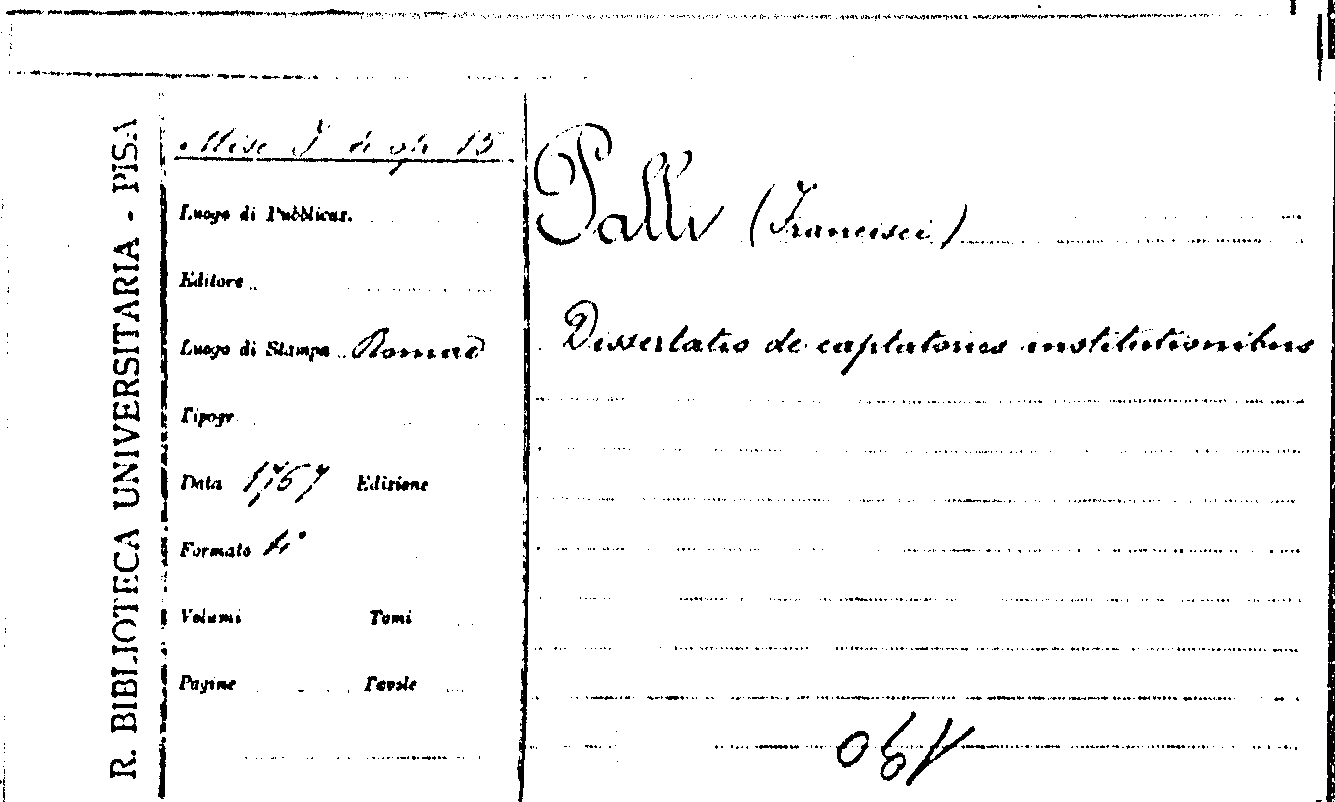 R. BIBLIOTECA UNIVERSITARIA - PISA
Misc I di op 15
Luogo di Pubblicaz.
Editore
Luogo di Stampa Romae
Tipogr.
Data 1767 Edizione
Formato 4°
Volumi Tomi
Pagine Tavole
Palli (Francisci)
Dissertatio de captatoriis institutionibus